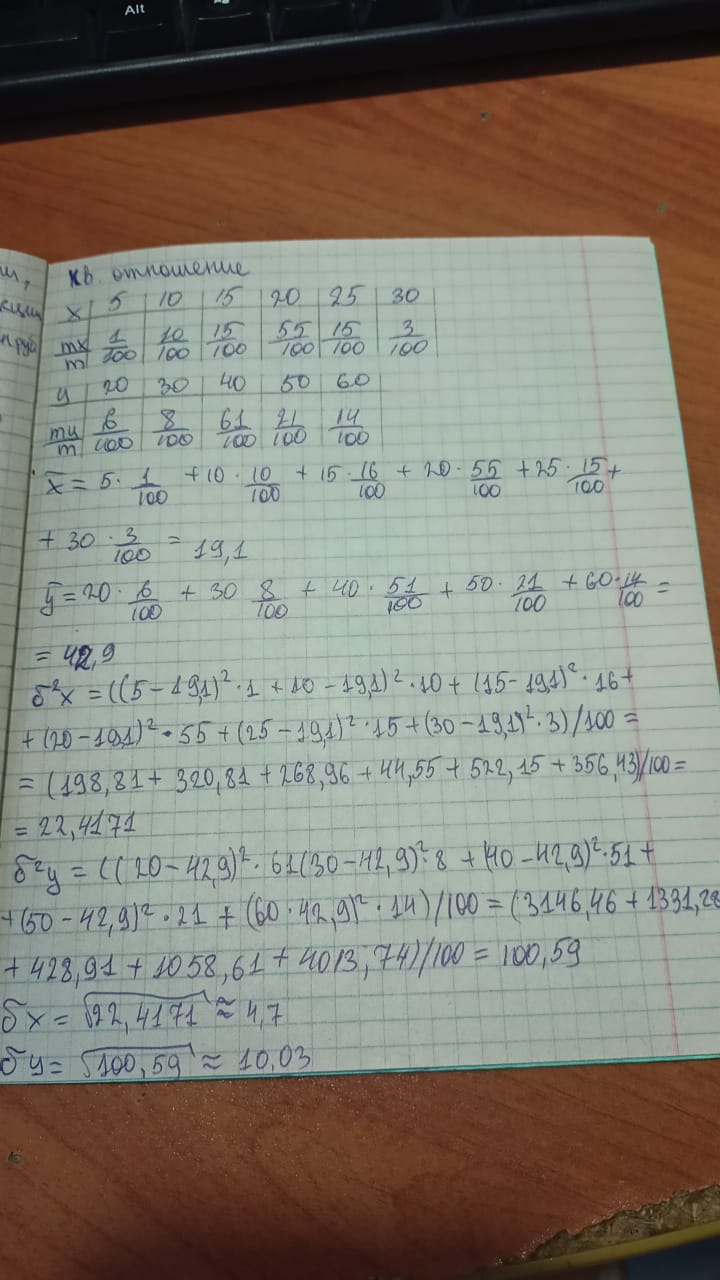 Alt
и,
кв. отношение
кции
x 5 10 15 20 25 30
mx/m 1/100 10/100 15/100 55/100 15/100 3/100
y 20 30 40 50 60
my/m 6/100 8/100 61/100 21/100 14/100
x̄ = 5 · 1/100 + 10 · 10/100 + 15 · 16/100 + 20 · 55/100 + 25 · 15/100 +
+ 30 · 3/100 = 19,1
ȳ = 20 · 6/100 + 30 8/100 + 40 · 51/100 + 50 · 21/100 + 60 · 14/100 =
= 42,9
б²x = ((5 − 19,1)² · 1 + 10 − 19,1)² · 10 + (15 − 19,1)² · 16 +
+ (20 − 19,1)² · 55 + (25 − 19,1)² · 15 + (30 − 19,1)² · 3)/100 =
= (198,81 + 320,81 + 268,96 + 44,55 + 522,15 + 356,43)/100 =
= 22,4171
б²y = ((20 − 42,9)² · 61(30 − 42,9)² · 8 + (40 − 42,9)² · 51 +
+ (50 − 42,9)² · 21 + (60 · 42,9)² · 14)/100 = (3146,46 + 1331,28
+ 428,91 + 1058,61 + 4013,74)/100 = 100,59
бx = √22,4171 ≈ 4,7
бy = √100,59 ≈ 10,03